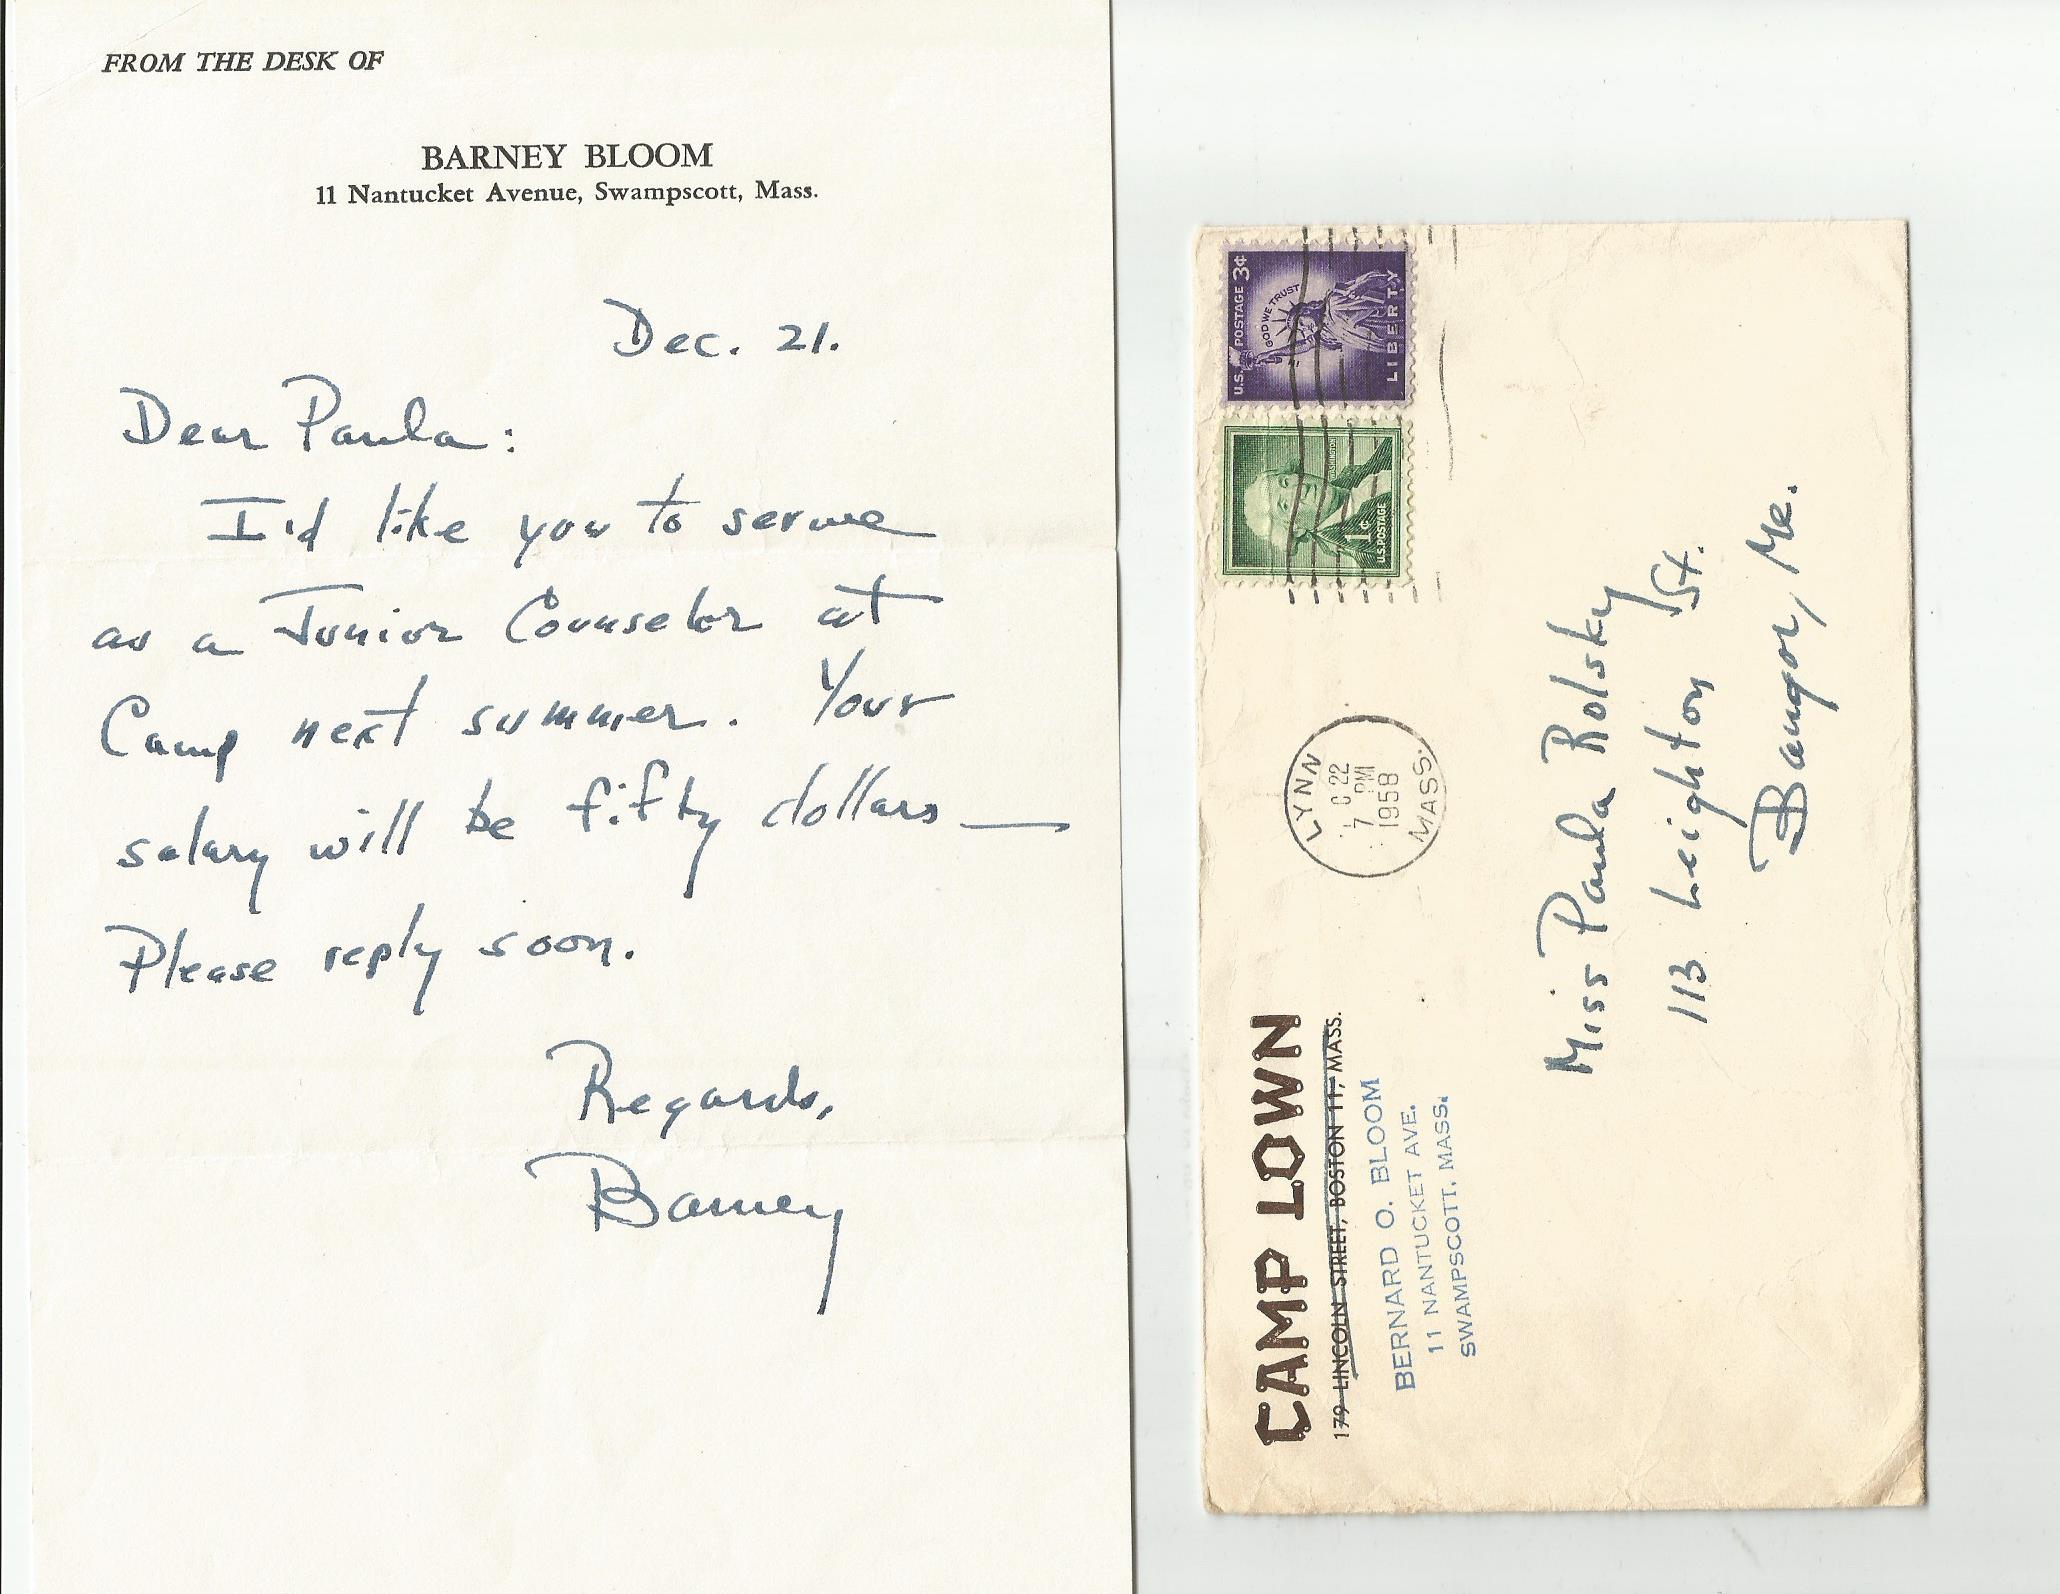 FROM THE DESK OF
BARNEY BLOOM
11 Nantucket Avenue, Swampscott, Mass.
Dec. 21.
Dear Paula:
I'd like you to serve
as a Junior Counselor at
Camp next summer. Your
salary will be fifty dollars —
Please reply soon.
Regards,
Barney
CAMP LOWN
179 LINCOLN STREET, BOSTON 11, MASS.
BERNARD O. BLOOM
11 NANTUCKET AVE.
SWAMPSCOTT, MASS.
LYNN
22
7 PM
1958
MASS.
U.S. POSTAGE 3¢
IN GOD WE TRUST
LIBERTY
WASHINGTON
1¢
U.S. POSTAGE
Miss Paula Rolsky
113 Leighton St.
Bangor, Me.